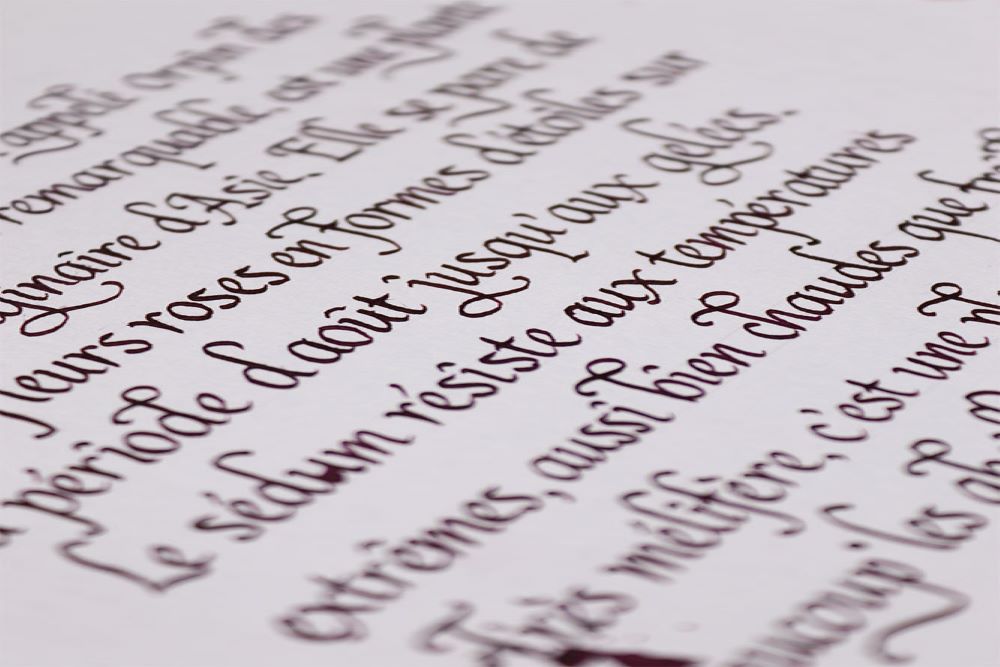 appelé orpin des
remarquable est une plante
ginaire d'Asie. Elle se pare de
fleurs roses en formes d'étoiles sur
période d'août jusqu'aux gelées.
Le sédum résiste aux températures
extrêmes, aussi bien chaudes que froi
Très mélifère, c'est une pl
aucoup les ab